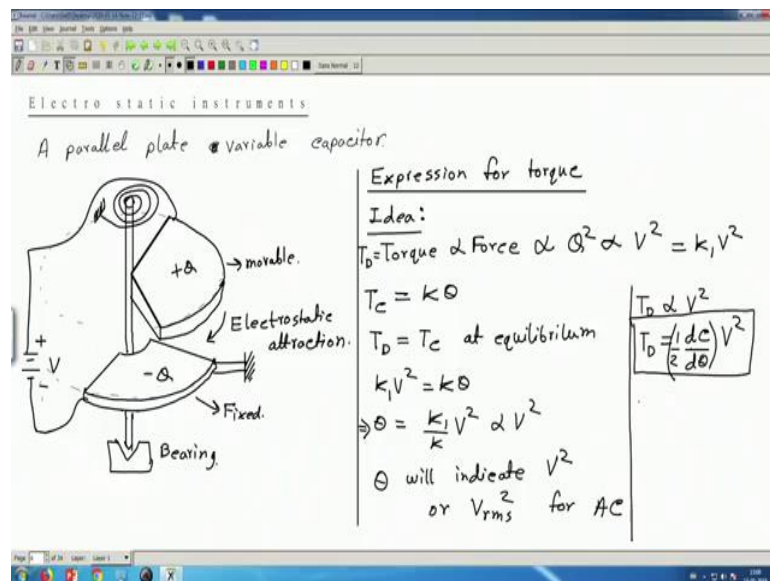 File Edit View Journal Tools Options Help
Electro static instruments
A parallel plate variable capacitor.
+Q
→movable.
Electrostatic
attraction.
+
V
-
-Q
→Fixed.
Bearing.
Expression for torque
Idea:
T_D=Torque ∝ Force ∝ Q² ∝ V² = k₁V²
T_c = kθ
T_D = T_c at equilibrium
k₁V² = kθ
⇒ θ = k₁/k V² ∝ V²
θ will indicate V²
or V_rms² for AC
T_D ∝ V²
T_D = (1/2 dc/dθ) V²
Layer: Layer 1